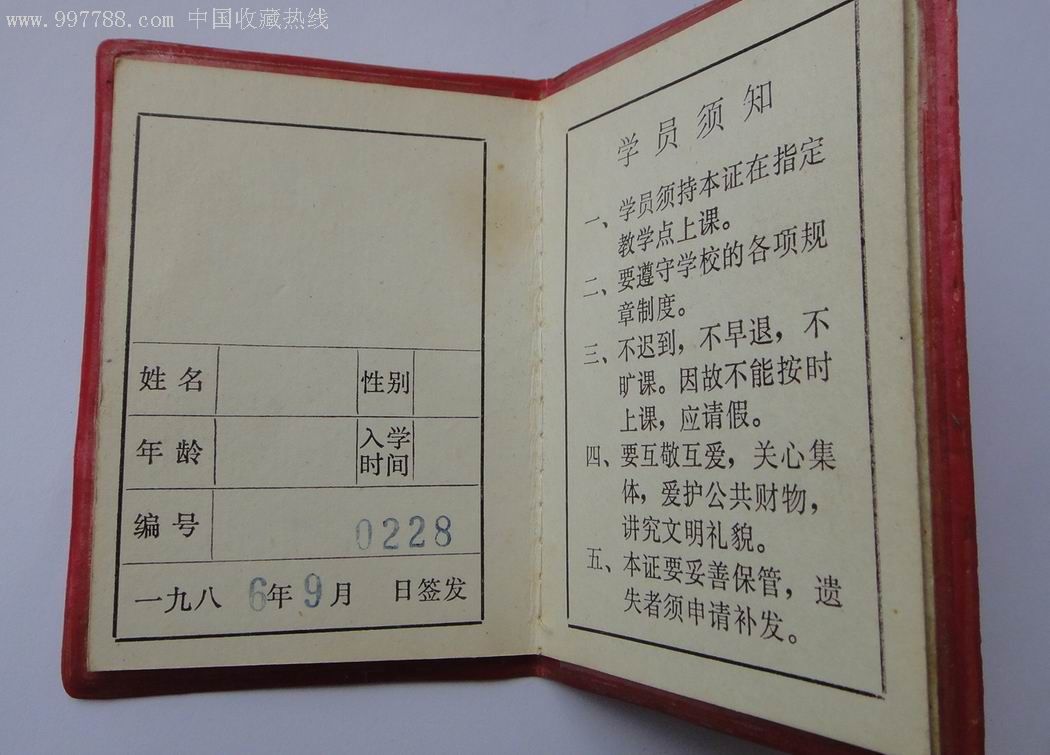 www.997788.com 中国收藏热线
姓名 性别
年龄 入学时间
编号 0228
一九八6年9月 日签发
学员须知
一、学员须持本证在指定
教学点上课。
二、要遵守学校的各项规
章制度。
三、不迟到，不早退，不
旷课。因故不能按时
上课，应请假。
四、要互敬互爱，关心集
体，爱护公共财物，
讲究文明礼貌。
五、本证要妥善保管，遗
失者须申请补发。